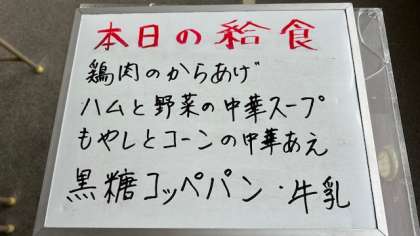 本日の給食
鶏肉のからあげ
ハムと野菜の中華スープ
もやしとコーンの中華あえ
黒糖コッペパン・牛乳